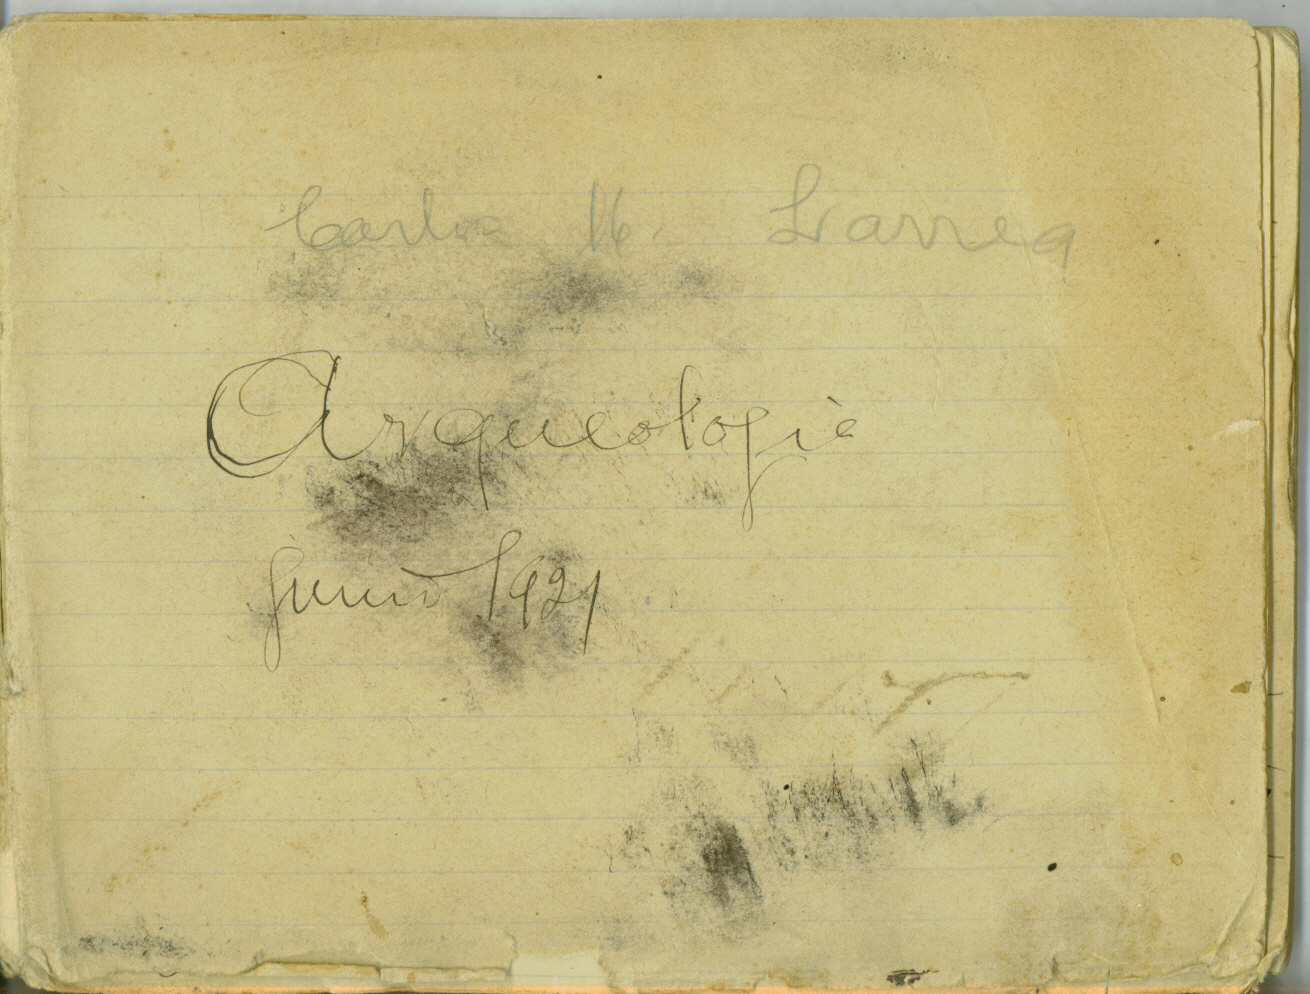 Carlos M. Larrea
Arqueologia
junio 1921